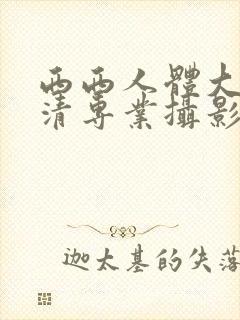 西西人體大
清專業攝影
迦太基的失落